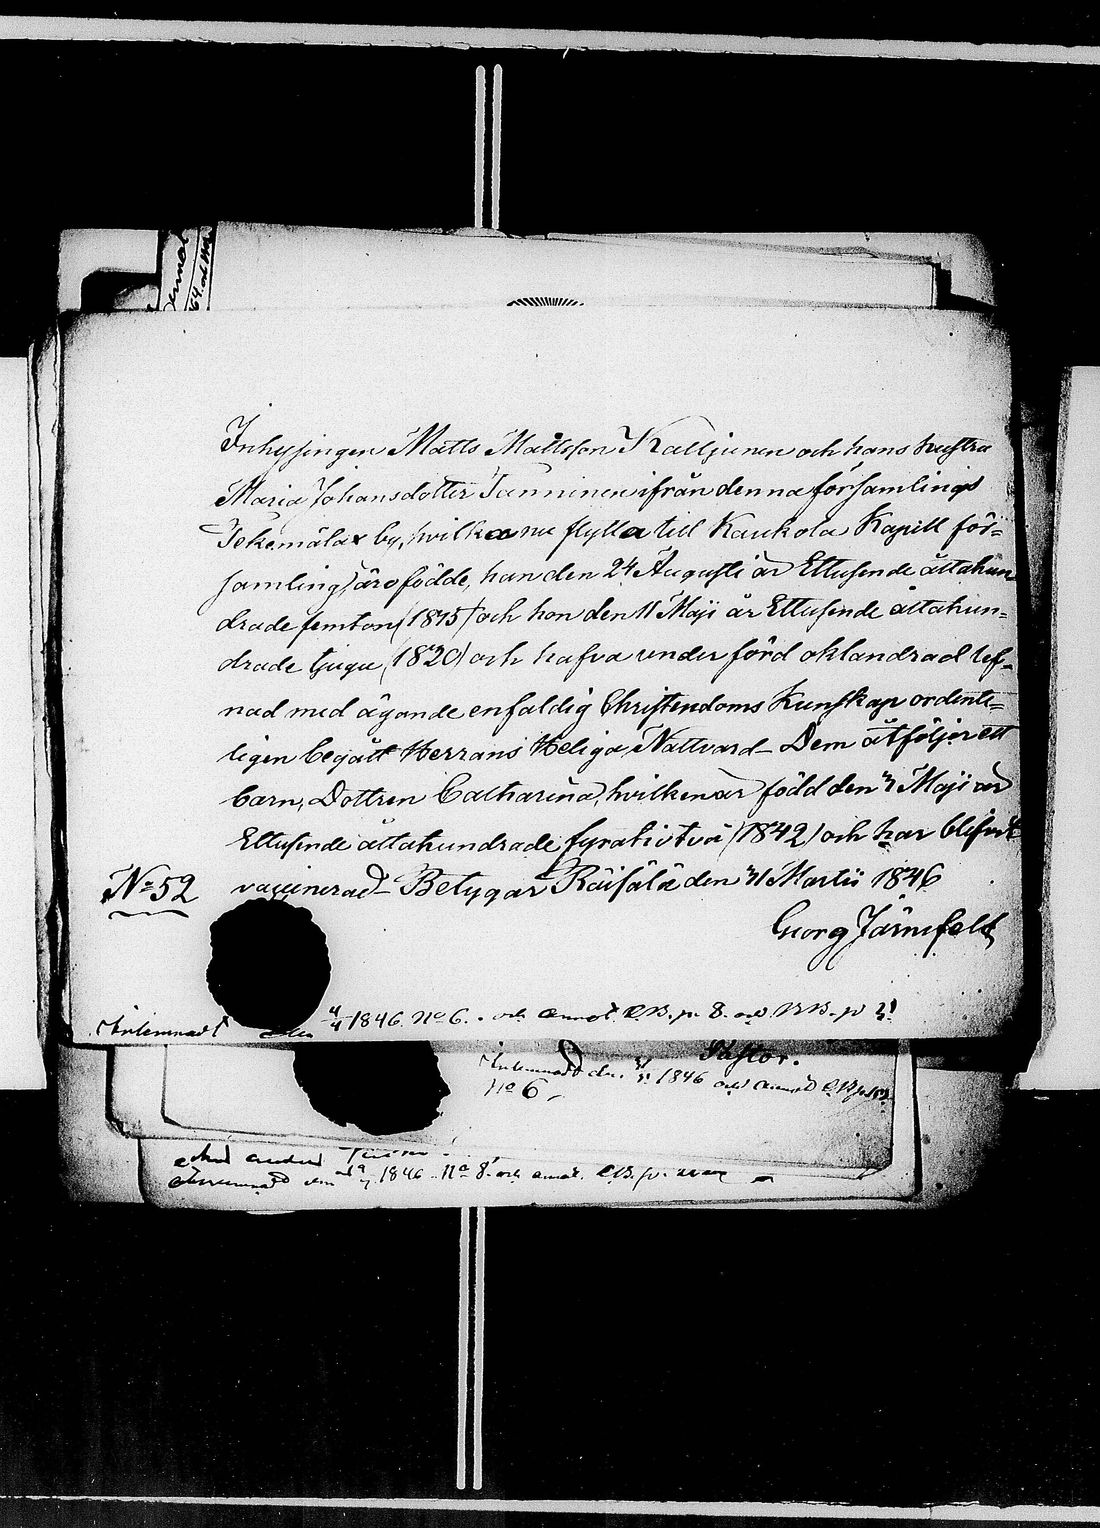 Inhysingen Matts Mattsson Kalljunen och hans hustru
Maria Johansdotter Tanninen ifrån denna församlings
by, hvilka nu flytta till Kaukola Kapell för=
samling, äro födde, han den 24 Augusti år Ettusende åttahun
drade femton (1815) och hon den 11 Maji år Ettusende åttahun=
drade tjugu (1820) och hafva under förd oklandrad lef=
nad med ägande enfaldig Christendoms Kunskap ordente=
ligen begått Herrans Heliga Nattvard_ Dem åtföljer ett
barn, Dottren Catharina, hvilken är född den Maji år
Ettusende åttahundrade fyratiotvå (1842) och har blifvit
No 52 vaccinerad_ Betygar Räisälä den 31 Martii 1846
Georg Järnefelt
Inlemnadt den 4/4 1846. No 6. och annot. C.B. p. 8.
Pastor.
Inlemnadt d. 1846 och annot C.B.
No 6
1846. No 8. och annot. C.B. p.